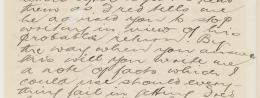 them as I tells and
he advised you to stop
writing in view of his
probable return. By
the way when you answer
this will you write me
a note of facts which I
could use should every-
thing fail in